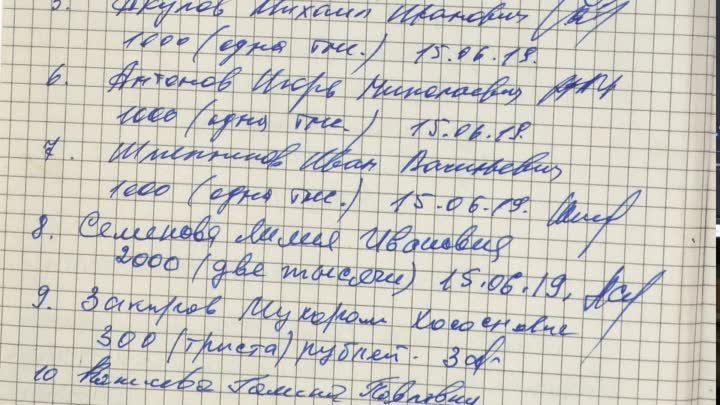 5. Акулов Михаил Иванович
1000 (одна тыс.) 15.06.19.
6. Антонов Игорь Николаевич
1000 (одна тыс.) 15.06.19.
7. Иван Васильевич
1000 (одна тыс.) 15.06.19.
8. Семенова Лилия Ивановна
2000 (две тысячи) 15.06.19.
9. Закиров Мухаром
300 (триста) рублей.
10 Галина Павловна